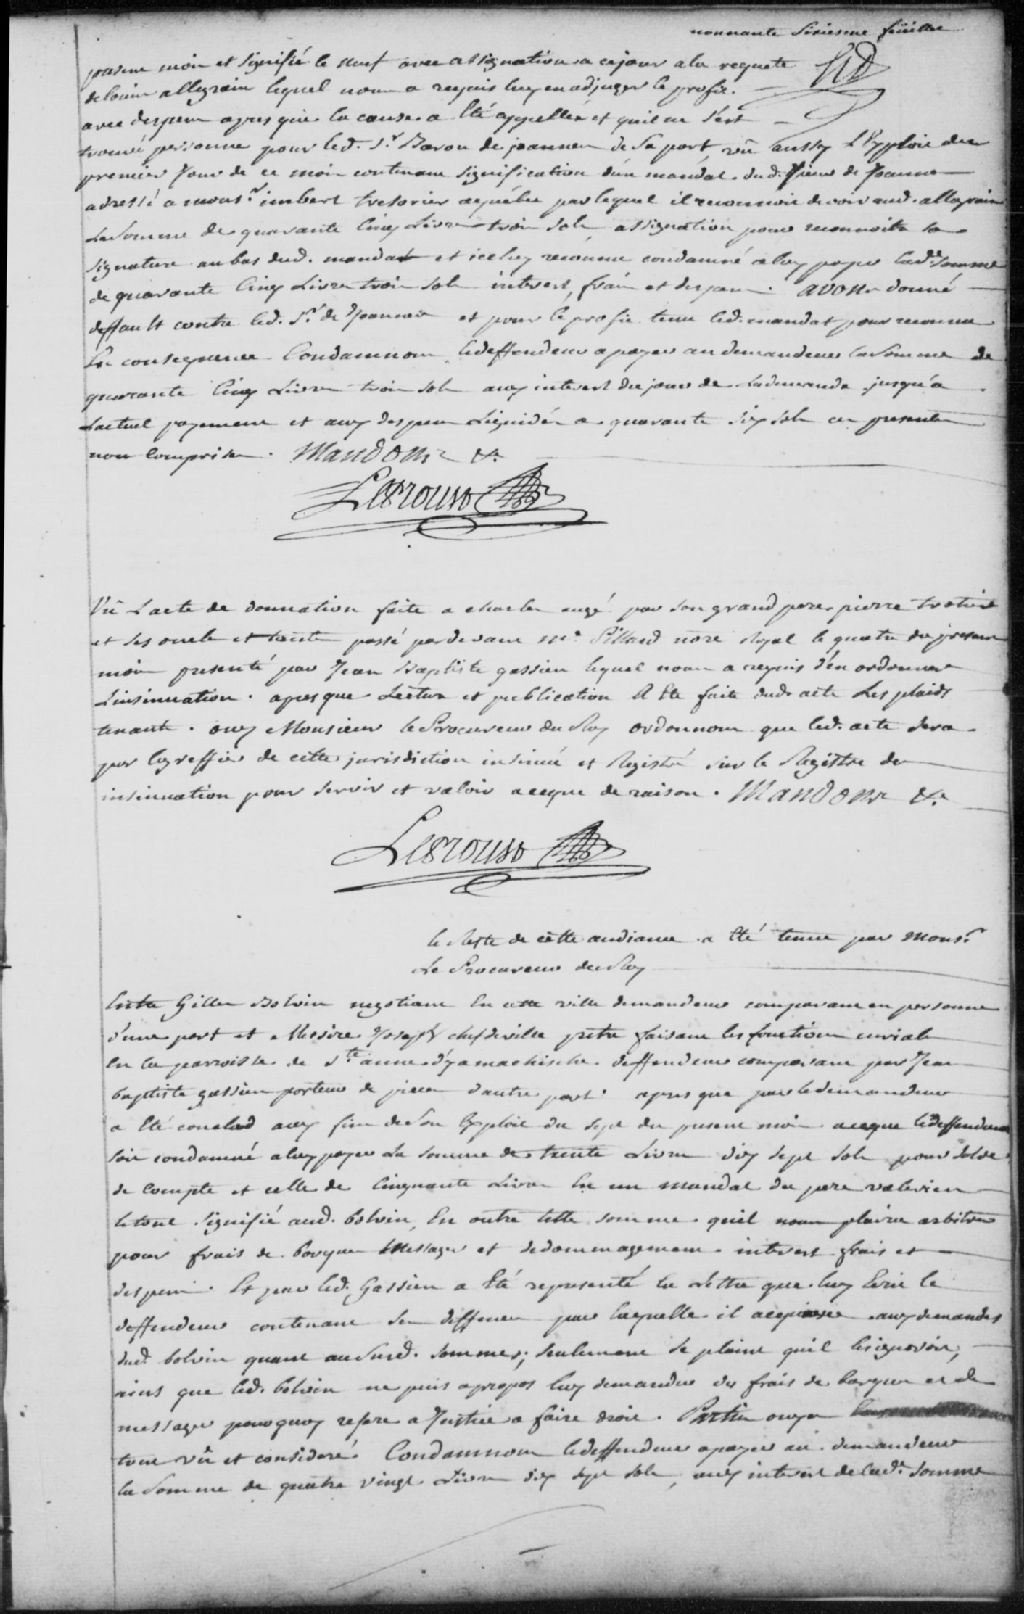 nonnante sixiesme feüillet
presene mois et signifié le neuf avec assignation a ce jour a la requete
de louis allegrain lequel nous a requis luy en adjuger le profit.
avec despens apres que la cause a Eté appellée et quil ne s'est
trouvé personne pour led. Sr. Baron de joannes de sa part, vû aussy l'Exploit du
premier Jour de ce mois contenant signification d'un mandat dud. Sieur de Joannes
adressé a monsr. imbert tresorier aquebec par lequel il reconnoit devoir aud. allegrain
La Somme de quarante Cinq Livres trois sols, assignation pour reconnoitre sa
signature au bas dud. mandat et iceluy reconnu condamné a luy payer lade. somme
de quarante Cinq Livres trois sols interest, frais et despens. avons donné
deffault contre led. Sr. de Joannes et pour le profit tenu led. mandat pour reconnu
En consequence Condamnons le deffendeur a payer au demandeur la Somme de
quarante Cinq Livres trois sols aux interest du jour de la demande jusqu'a
Lactuel payement et aux despens Liquidés a quarante six sols ces presentes
non comprises. Mandons &a.
Leprouso
Vû Lacte de donnation faite a charles augé par son grand pere pierre trotier
et ses oncles et tante passé pardevant me. Pillard nore Royal le quatre du present
mois presenté par Jean Baptiste gassien lequel nous a requis d'en ordonner
Linsinuation. apres que Lecture et publication a Eté faite dud. acte Les plaids
tenants. ouy Monsieur le Procureur du Roy ordonnons que led. acte sera
par le greffier de cette jurisdiction insinué et Registré sur le Registre des
insinuation pour servir et valoir a ce que de raison. Mandons &a.
Leprouso
le Reste de cette audiance a Eté tenue par monsr.
Le Procureur du Roy
Entre Gilles Bolvin negotiant En cette ville demandeur comparant en personne
d'une part et Messire Joseph chefdeville pretre faisant les fonctions curiales
En la parroisse de Ste. anne d'yamachiche deffendeur comparant par Jean
baptiste gassien porteur de pieces d'autre part. apres que par le demandeur
a Eté conclud aux fins de son Exploit du sept du present mois a ce que le deffendeur
soit condamné a luy payer La somme de trente Livres dix sept sols pour solde
de compte et celle de Cinquante Livres En un mandat du pere valerien
le tout signifié aud. bolvin, En outre telle somme quil nous plaira arbitrer
pour frais de voyage Messager et dedommagement interest frais et
despens. Et par led. Gassien a Eté representé La Lettre que luy Ecrit le
deffendeur contenant ses deffenses par laquelle il acquiesce aux demandes
dud. bolvin quant aususd. sommes; seulement se plaint quil
ains que led. bolvin ne puis apropos luy demander des frais de barque et de
messager pourquoy refere a Justice a faire droit. Parties ouyes
tout vû et consideré Condamnons le deffendeur a payer au demandeur
la Somme de quatre vingt Livres dix sept sols, aux interest de lade. somme